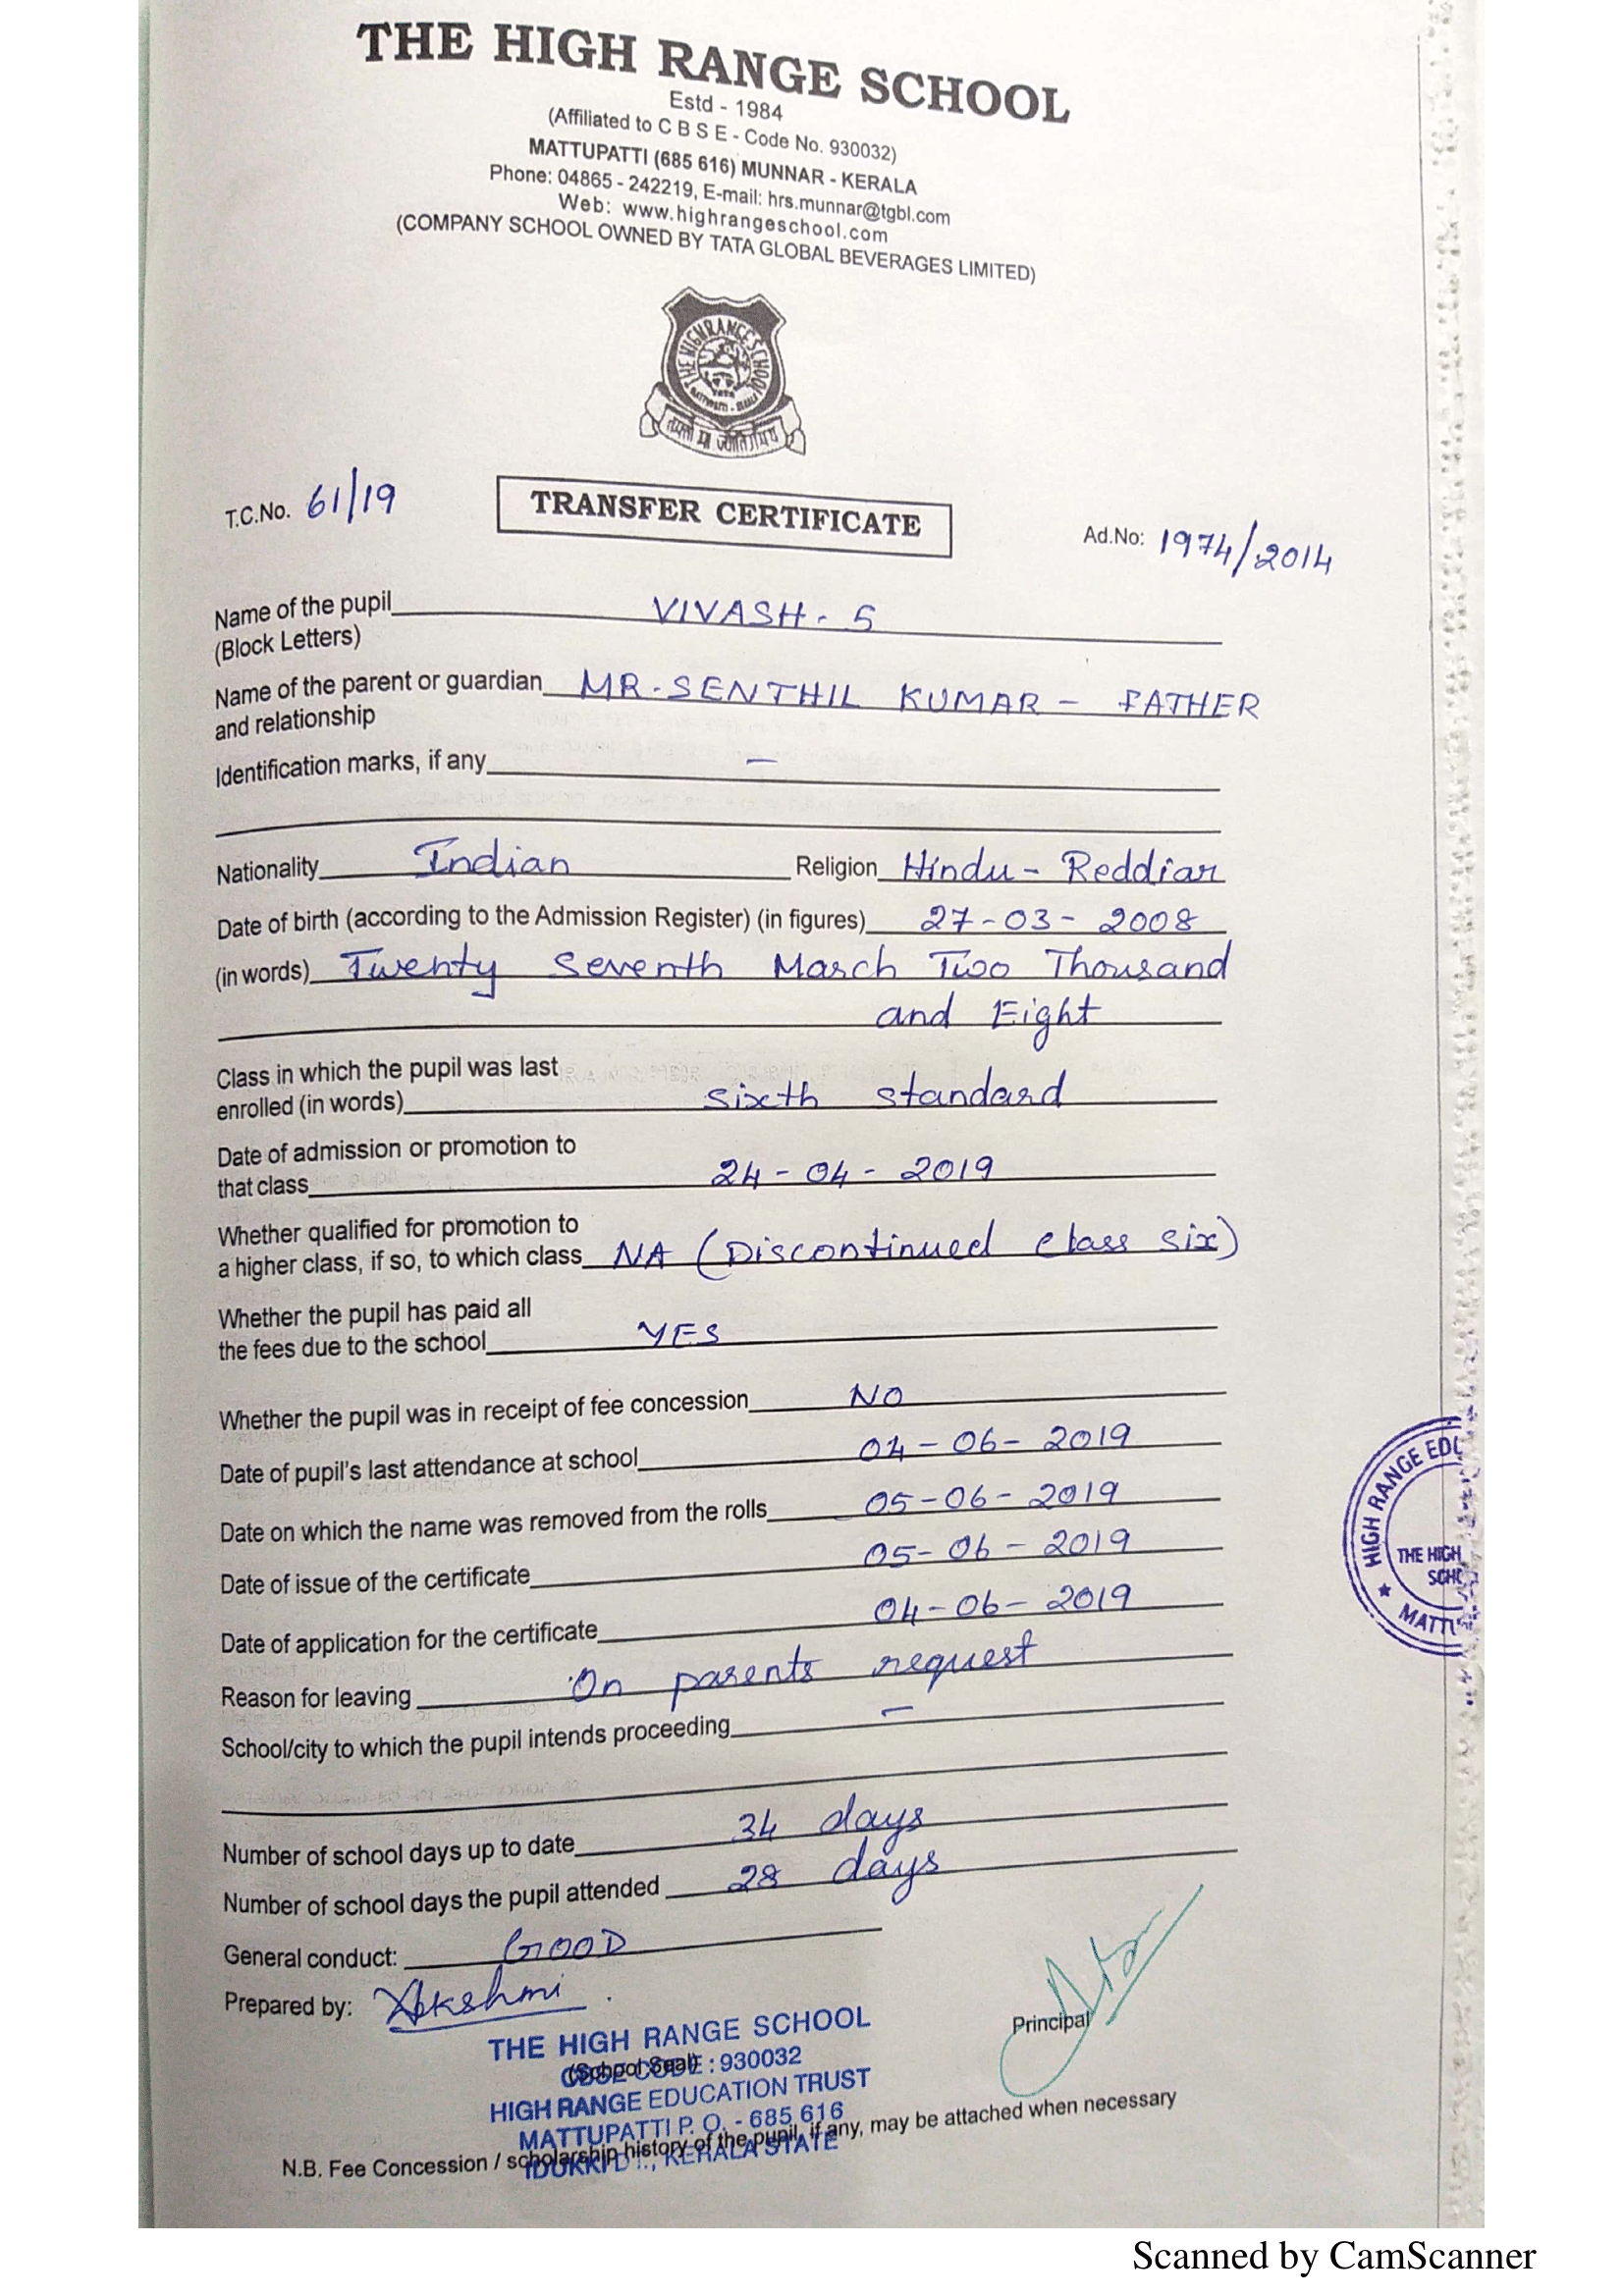 THE HIGH RANGE SCHOOL
Estd - 1984
(Affiliated to C B S E - Code No. 930032)
MATTUPATTI (685 616) MUNNAR - KERALA
Phone: 04865 - 242219, E-mail: hrs.munnar@tgbl.com
Web: www.highrangeschool.com
(COMPANY SCHOOL OWNED BY TATA GLOBAL BEVERAGES LIMITED)
THE HIGH RANGE SCHOOL
T.C.No. 61/19
TRANSFER CERTIFICATE
Ad.No: 1974/2014
Name of the pupil VIVASH. S
(Block Letters)
Name of the parent or guardian MR. SENTHIL KUMAR - FATHER
and relationship
Identification marks, if any —
Nationality Indian Religion Hindu - Reddiar
Date of birth (according to the Admission Register) (in figures) 27-03-2008
(in words) Twenty Seventh March Two Thousand
and Eight
Class in which the pupil was last
enrolled (in words) Sixth Standard
Date of admission or promotion to
that class 24-04-2019
Whether qualified for promotion to
a higher class, if so, to which class NA (Discontinued class six)
Whether the pupil has paid all
the fees due to the school YES
Whether the pupil was in receipt of fee concession NO
Date of pupil's last attendance at school 04-06-2019
Date on which the name was removed from the rolls 05-06-2019
Date of issue of the certificate 05-06-2019
Date of application for the certificate 04-06-2019
Reason for leaving On parents request
School/city to which the pupil intends proceeding —
Number of school days up to date 34 days
Number of school days the pupil attended 28 days
General conduct: GOOD
Prepared by:
Principal
THE HIGH RANGE SCHOOL
(School Seal)
CBSE CODE : 930032
HIGH RANGE EDUCATION TRUST
MATTUPATTI P. O. - 685 616
IDUKKI DT., KERALA STATE
N.B. Fee Concession / scholarship history of the pupil, if any, may be attached when necessary
HIGH RANGE EDU
THE HIGH
SCHO
MATTU
Scanned by CamScanner